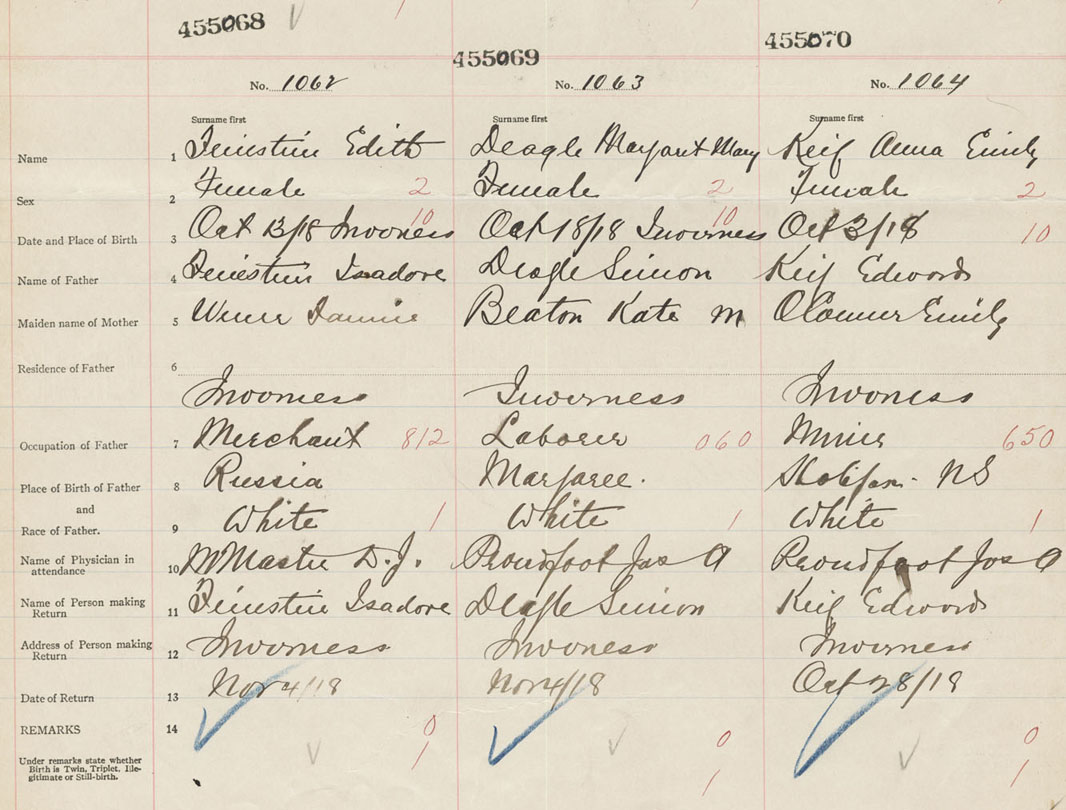 455068
455069
455070
No. 1062 No. 1063 No. 1064
Surname first Surname first Surname first
Name 1 Feinstein Edith Deagle Margaret Mary Keif Anna Emily
Sex 2 Female 2 Female 2 Female 2
10 10
Date and Place of Birth 3 Oct 13/18 Inverness Oct 18/18 Inverness Oct 3/18 10
Name of Father 4 Feinstein Isadore Deagle Simon Keif Edward
Maiden name of Mother 5 Beaton Kate M O'Connor Emily
Residence of Father 6
Inverness Inverness Inverness
Occupation of Father 7 Merchant 812 Laborer 060 Miner 650
Place of Birth of Father 8 Russia Margaree. NS
and
Race of Father. 9 White 1 White 1 White 1
Name of Physician in
attendance 10 McMaster D.J. Proudfoot Jas A Proudfoot Jos A
Name of Person making
Return 11 Feinstein Isadore Deagle Simon Keif Edward
Address of Person making
Return 12 Inverness Inverness Inverness
Date of Return 13 Nov 4/18 Nov 4/18 Oct 28/18
REMARKS 14 0 0 0
Under remarks state whether
Birth is Twin, Triplet, Ille-
gitimate or Still-birth. 1 1 1